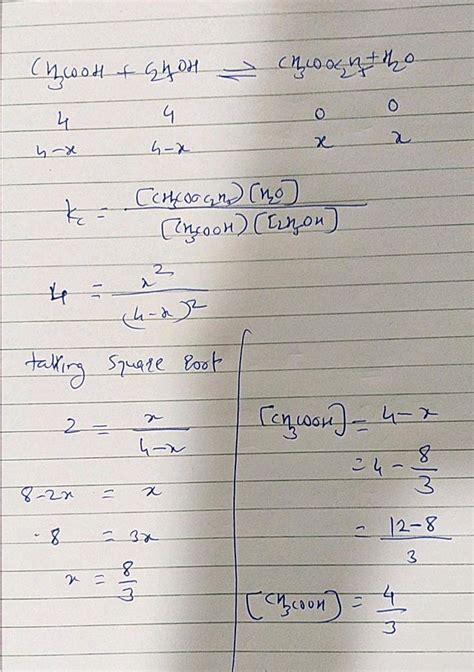 CH3COOH + C2H5OH ⇌ CH3COOC2H5 + H2O
4 4 0 0
4-x 4-x x x
Kc = [CH3COOC2H5] [H2O] / [CH3COOH] [C2H5OH]
4 = x² / (4-x)²
taking Square Root
2 = x / 4-x
8-2x = x
8 = 3x
x = 8/3
[CH3COOH] = 4-x
= 4 - 8/3
= 12-8 / 3
[CH3COOH] = 4/3